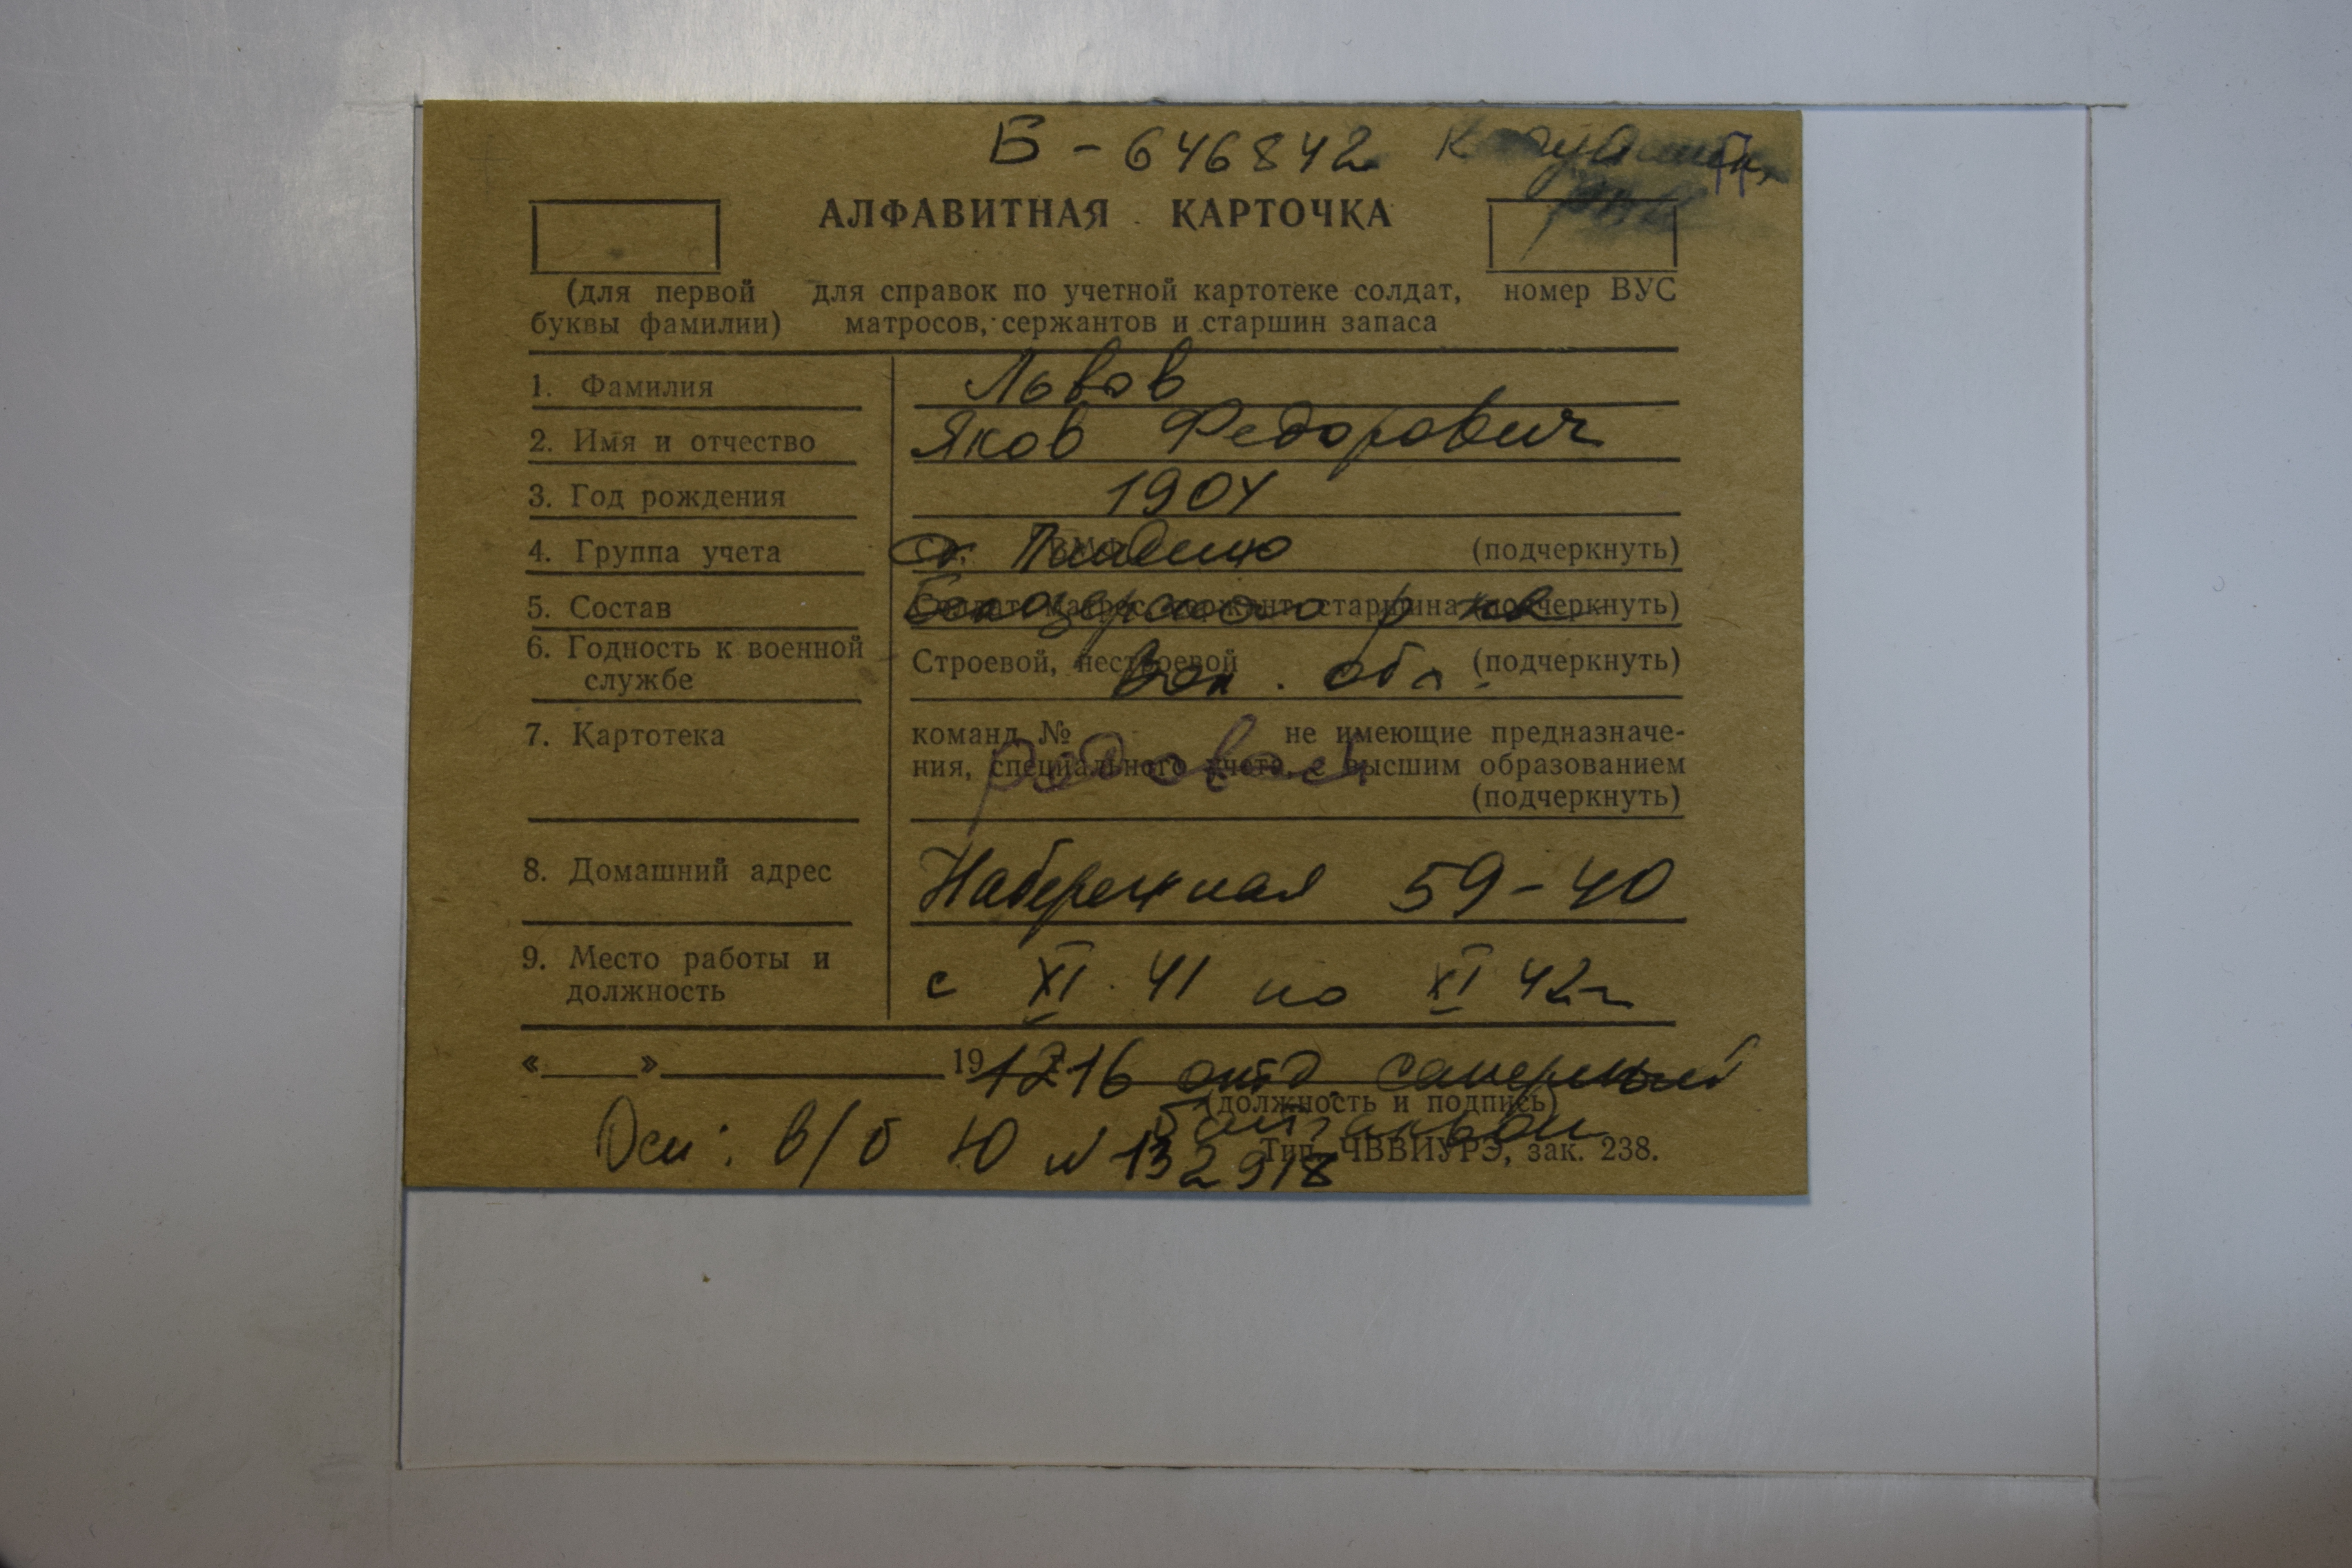 Б - 646842
АЛФАВИТНАЯ КАРТОЧКА
(для первой буквы фамилии)
для справок по учетной картотеке солдат, матросов, сержантов и старшин запаса
номер ВУС
1. Фамилия Львов
2. Имя и отчество Яков Федорович
3. Год рождения 1904
4. Группа учета (подчеркнуть)
5. Состав старшина (подчеркнуть)
6. Годность к военной службе Строевой, нестроевой (подчеркнуть)
Вол. обл.
7. Картотека
команд № не имеющие предназначе-
ния, специального учета, с высшим образованием
(подчеркнуть)
рядовой
8. Домашний адрес Набережная 59-40
9. Место работы и должность с XI.41 по XI 42г
« » 19
1216 отд. саперный
(должность и подпись)
батальон
Осн: в/б Ю № 132918
Тип. ЧВВИУРЭ, зак. 238.